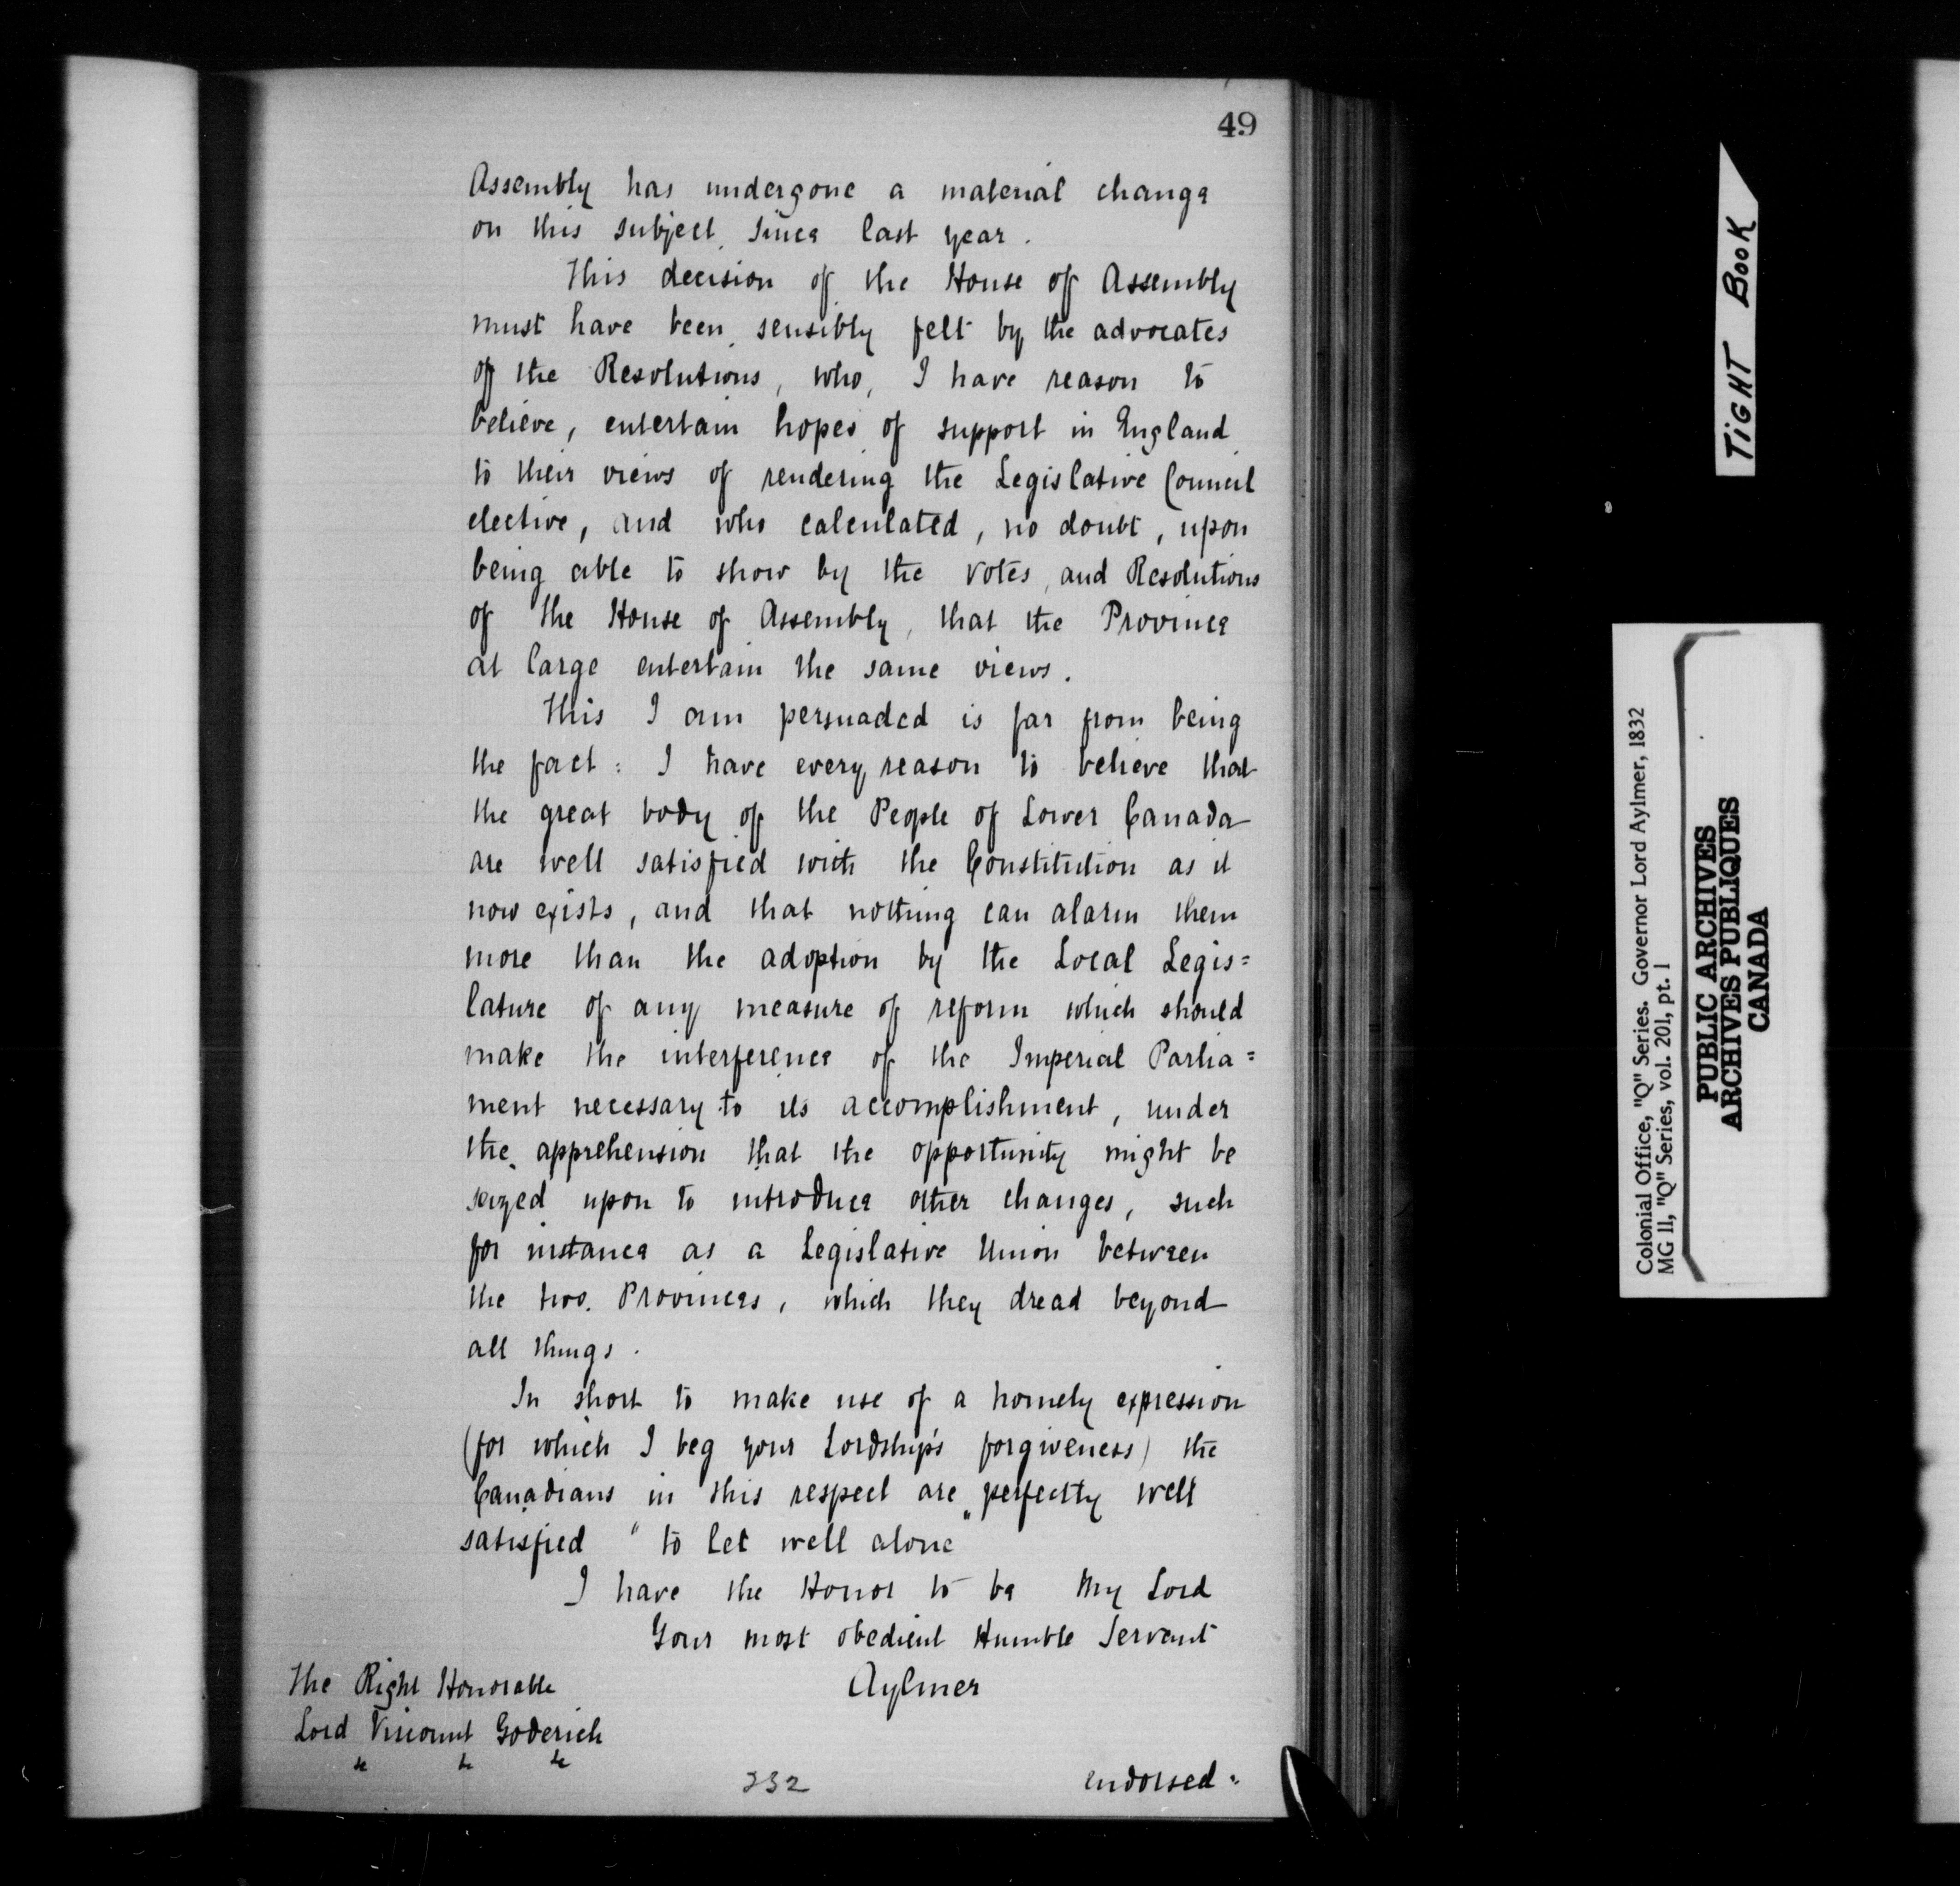 49
Assembly has undergone a material change
on this subject since last year.
This decision of the House of Assembly
must have been sensibly felt by the advocates
of the Resolutions, who, I have reason to
believe, entertain hopes of support in England
to their views of rendering the Legislative Council
elective, and who calculated, no doubt, upon
being able to show by the votes, and Resolutions
of the House of Assembly, that the Province
at large entertain the same views.
This I am persuaded is far from being
the fact: I have every reason to believe that
the great body of the People of Lower Canada
are well satisfied with the Constitution as it
now exists, and that nothing can alarm them
more than the adoption by the Local Legis=
lature of any measure of reform which should
make the interference of the Imperial Parlia=
ment necessary to its accomplishment, under
the apprehension that the opportunity might be
seized upon to introduce other changes, such
for instance as a Legislative Union between
the two Provinces, which they dread beyond
all things.
In short to make use of a homely expression
(for which I beg your Lordship's forgiveness) the
Canadians in this respect are perfectly well
satisfied "to let well alone"
I have the Honor to be My Lord
Your most obedient Humble Servant
Aylmer
The Right Honorable
Lord Viscount Goderich
&c &c &c
232
endorsed:
TIGHT BOOK
Colonial Office, "Q" Series. Governor Lord Aylmer, 1832
MG 11, "Q" Series, vol. 201, pt. 1
PUBLIC ARCHIVES
ARCHIVES PUBLIQUES
CANADA